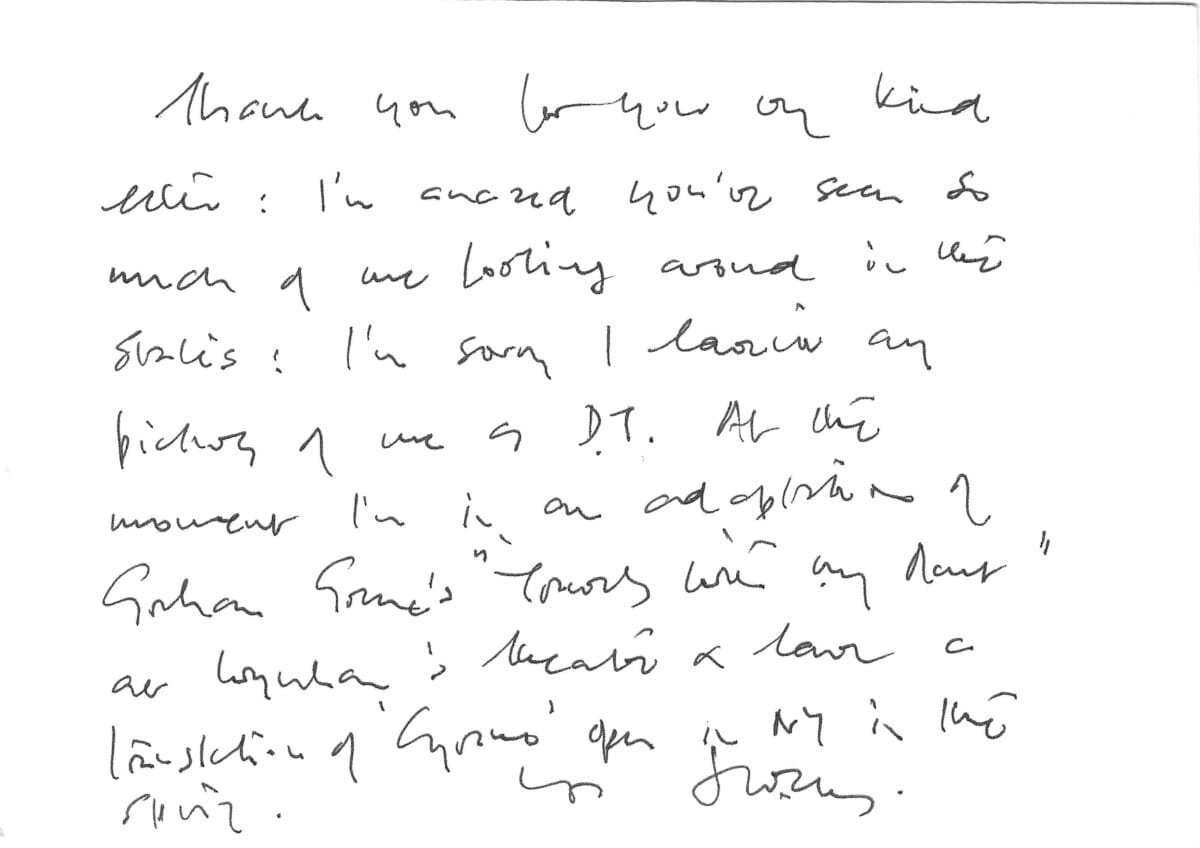 Thank you for your kind
letter : I'm amazed you've seen so
much of me around in the
States : I'm sorry I haven't any
pictures of me as D.T. At the
moment I'm in an adaptation of
Graham Greene's "Travels with my Aunt"
at Wyndham's theatre & have a
translation of 'Cyrano' open in NY in the
spring.